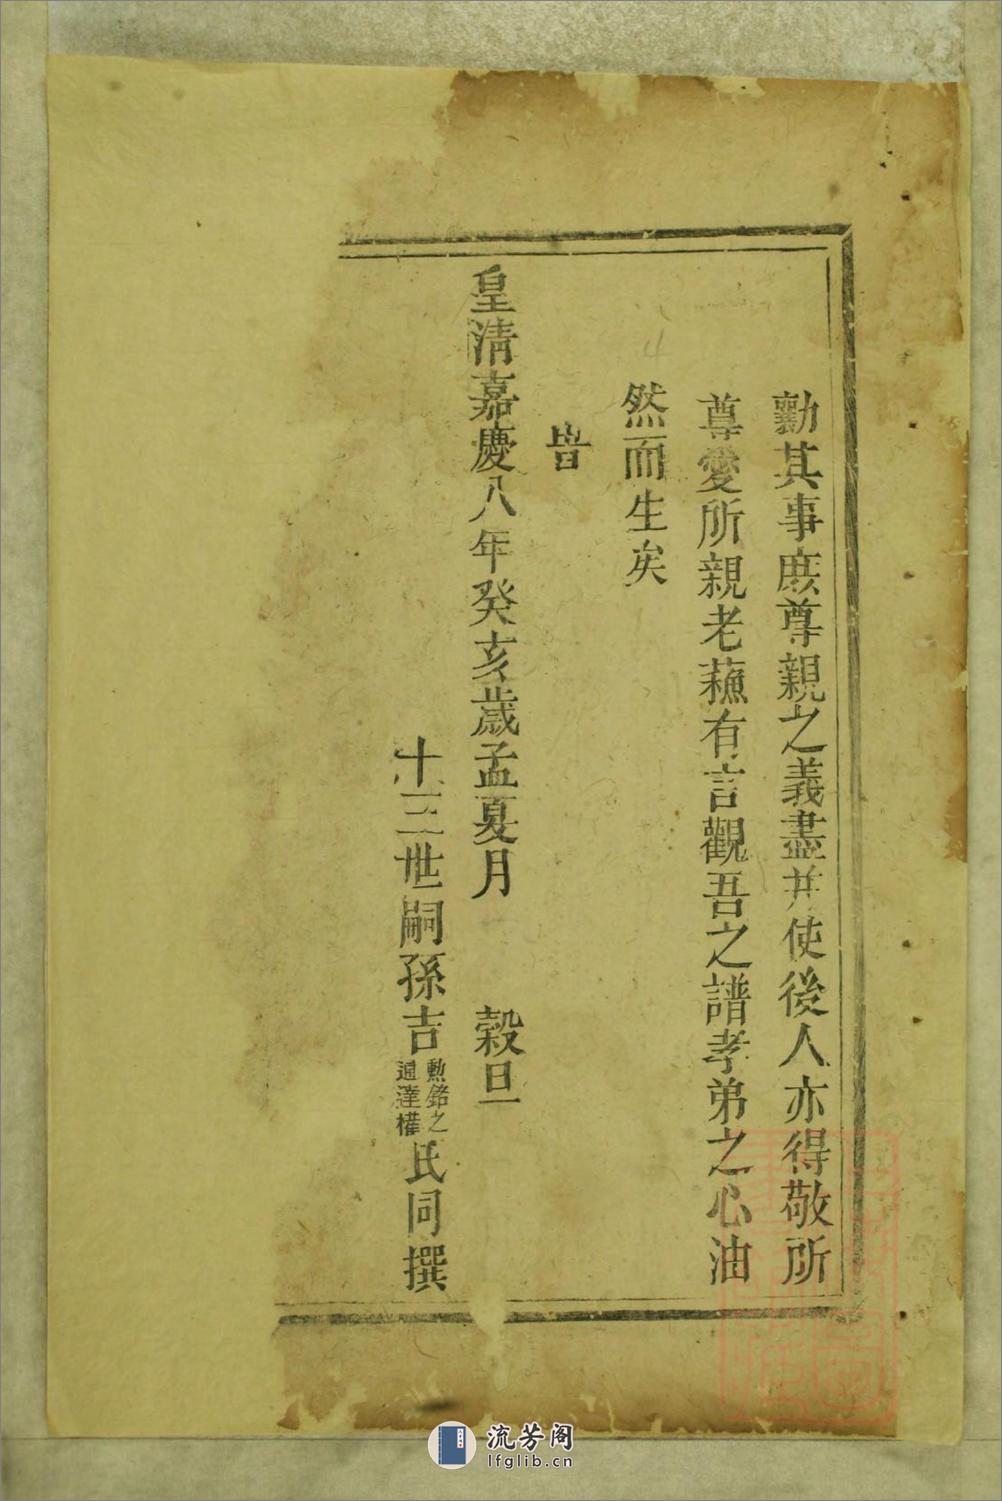 勸其事庶尊親之義盡并使後人亦得敬所
尊愛所親老蘓有言觀吾之譜孝弟之心油
然而生矣
旹
皇清嘉慶八年癸亥歲孟夏月 穀旦
十三世嗣孫吉勲銘之通達權氏同撰
流芳阁
lfglib.cn